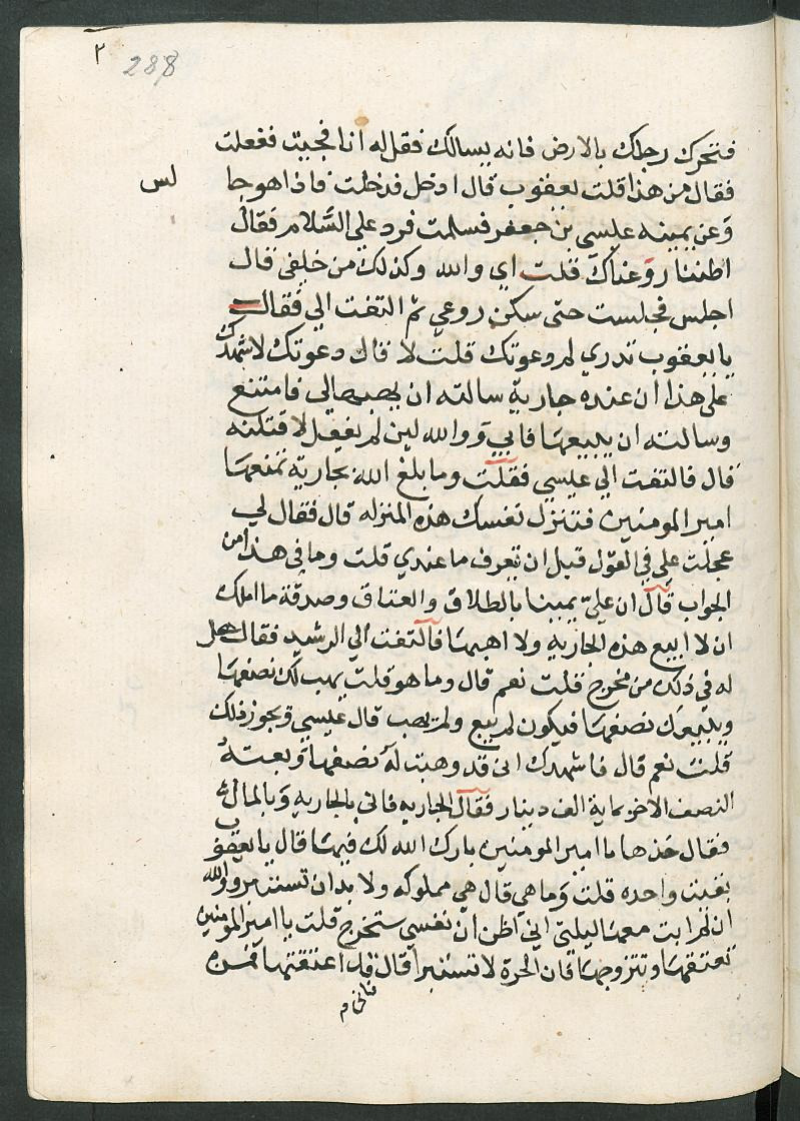 ٢
288
فتحرك رجلك بالارض فانه يسالك فقل له انا فجيت ففعلت
فقال من هذا قلت يعقوب قال ادخل فدخلت فاذا هو جا لس
وعن يمينه عيسى بن جعفر فسلمت فرد علي السلام فقال
اظننا روعناك قلت اي والله وكذلك من خلفي قال
اجلس فجلست حتى سكن روعي ثم التفت الي فقال
يا يعقوب تدري لم دعوتك قلت لا قال دعوتك لاشهدك
على هذا ان عنده جارية سالته ان يهبها لي فامتنع
وسالته ان يبيعها فابي ووالله لين لم يفعل لاقتلنه
قال فالتفت الي عيسي فقلت وما بلغ الله بجارية تمنعها
امير المومنين فتنزل نفسك هذه المنزله قال فقال لي
عجلت علي في القول قبل ان تعرف ما عندي قلت وما في هذا من
الجواب قال ان علي يمينا بالطلاق والعتاق وصدقة ما املك
ان لا ابيع هذه الجاريه ولا اهبها فالتفت الي الرشيد فقال هل
له في ذلك من مخرج قلت نعم قال وما هو قلت يهب لك نصفها
ويبيعك نصفها فيكون لم يبع ولم يهب قال عيسي ويجوز ذلك
قلت نعم قال فاشهدك اني قد وهبت له نصفها وبعته
النصف الاخر بماية الف دينار فقال الجاريه فاتي بالجاريه وبالمال
فقال خذها يا امير المومنين بارك الله لك فيها قال يا يعقوب
بقيت واحده قلت وما هي قال هي مملوكه ولا بد ان تستبرو والله
ان لم ابت معها ليلتي اني اظن ان نفسي ستخرج قلت يا امير المومنين
تعتقها وتتزوجها فان الحرة لا تستبرا قال قد اعتقتها فمن